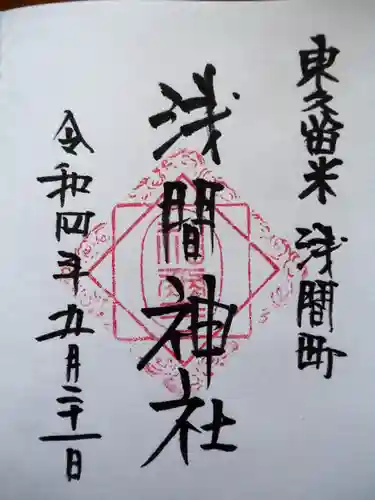 東久留米 浅間町
浅間神社
令和四年五月二十一日